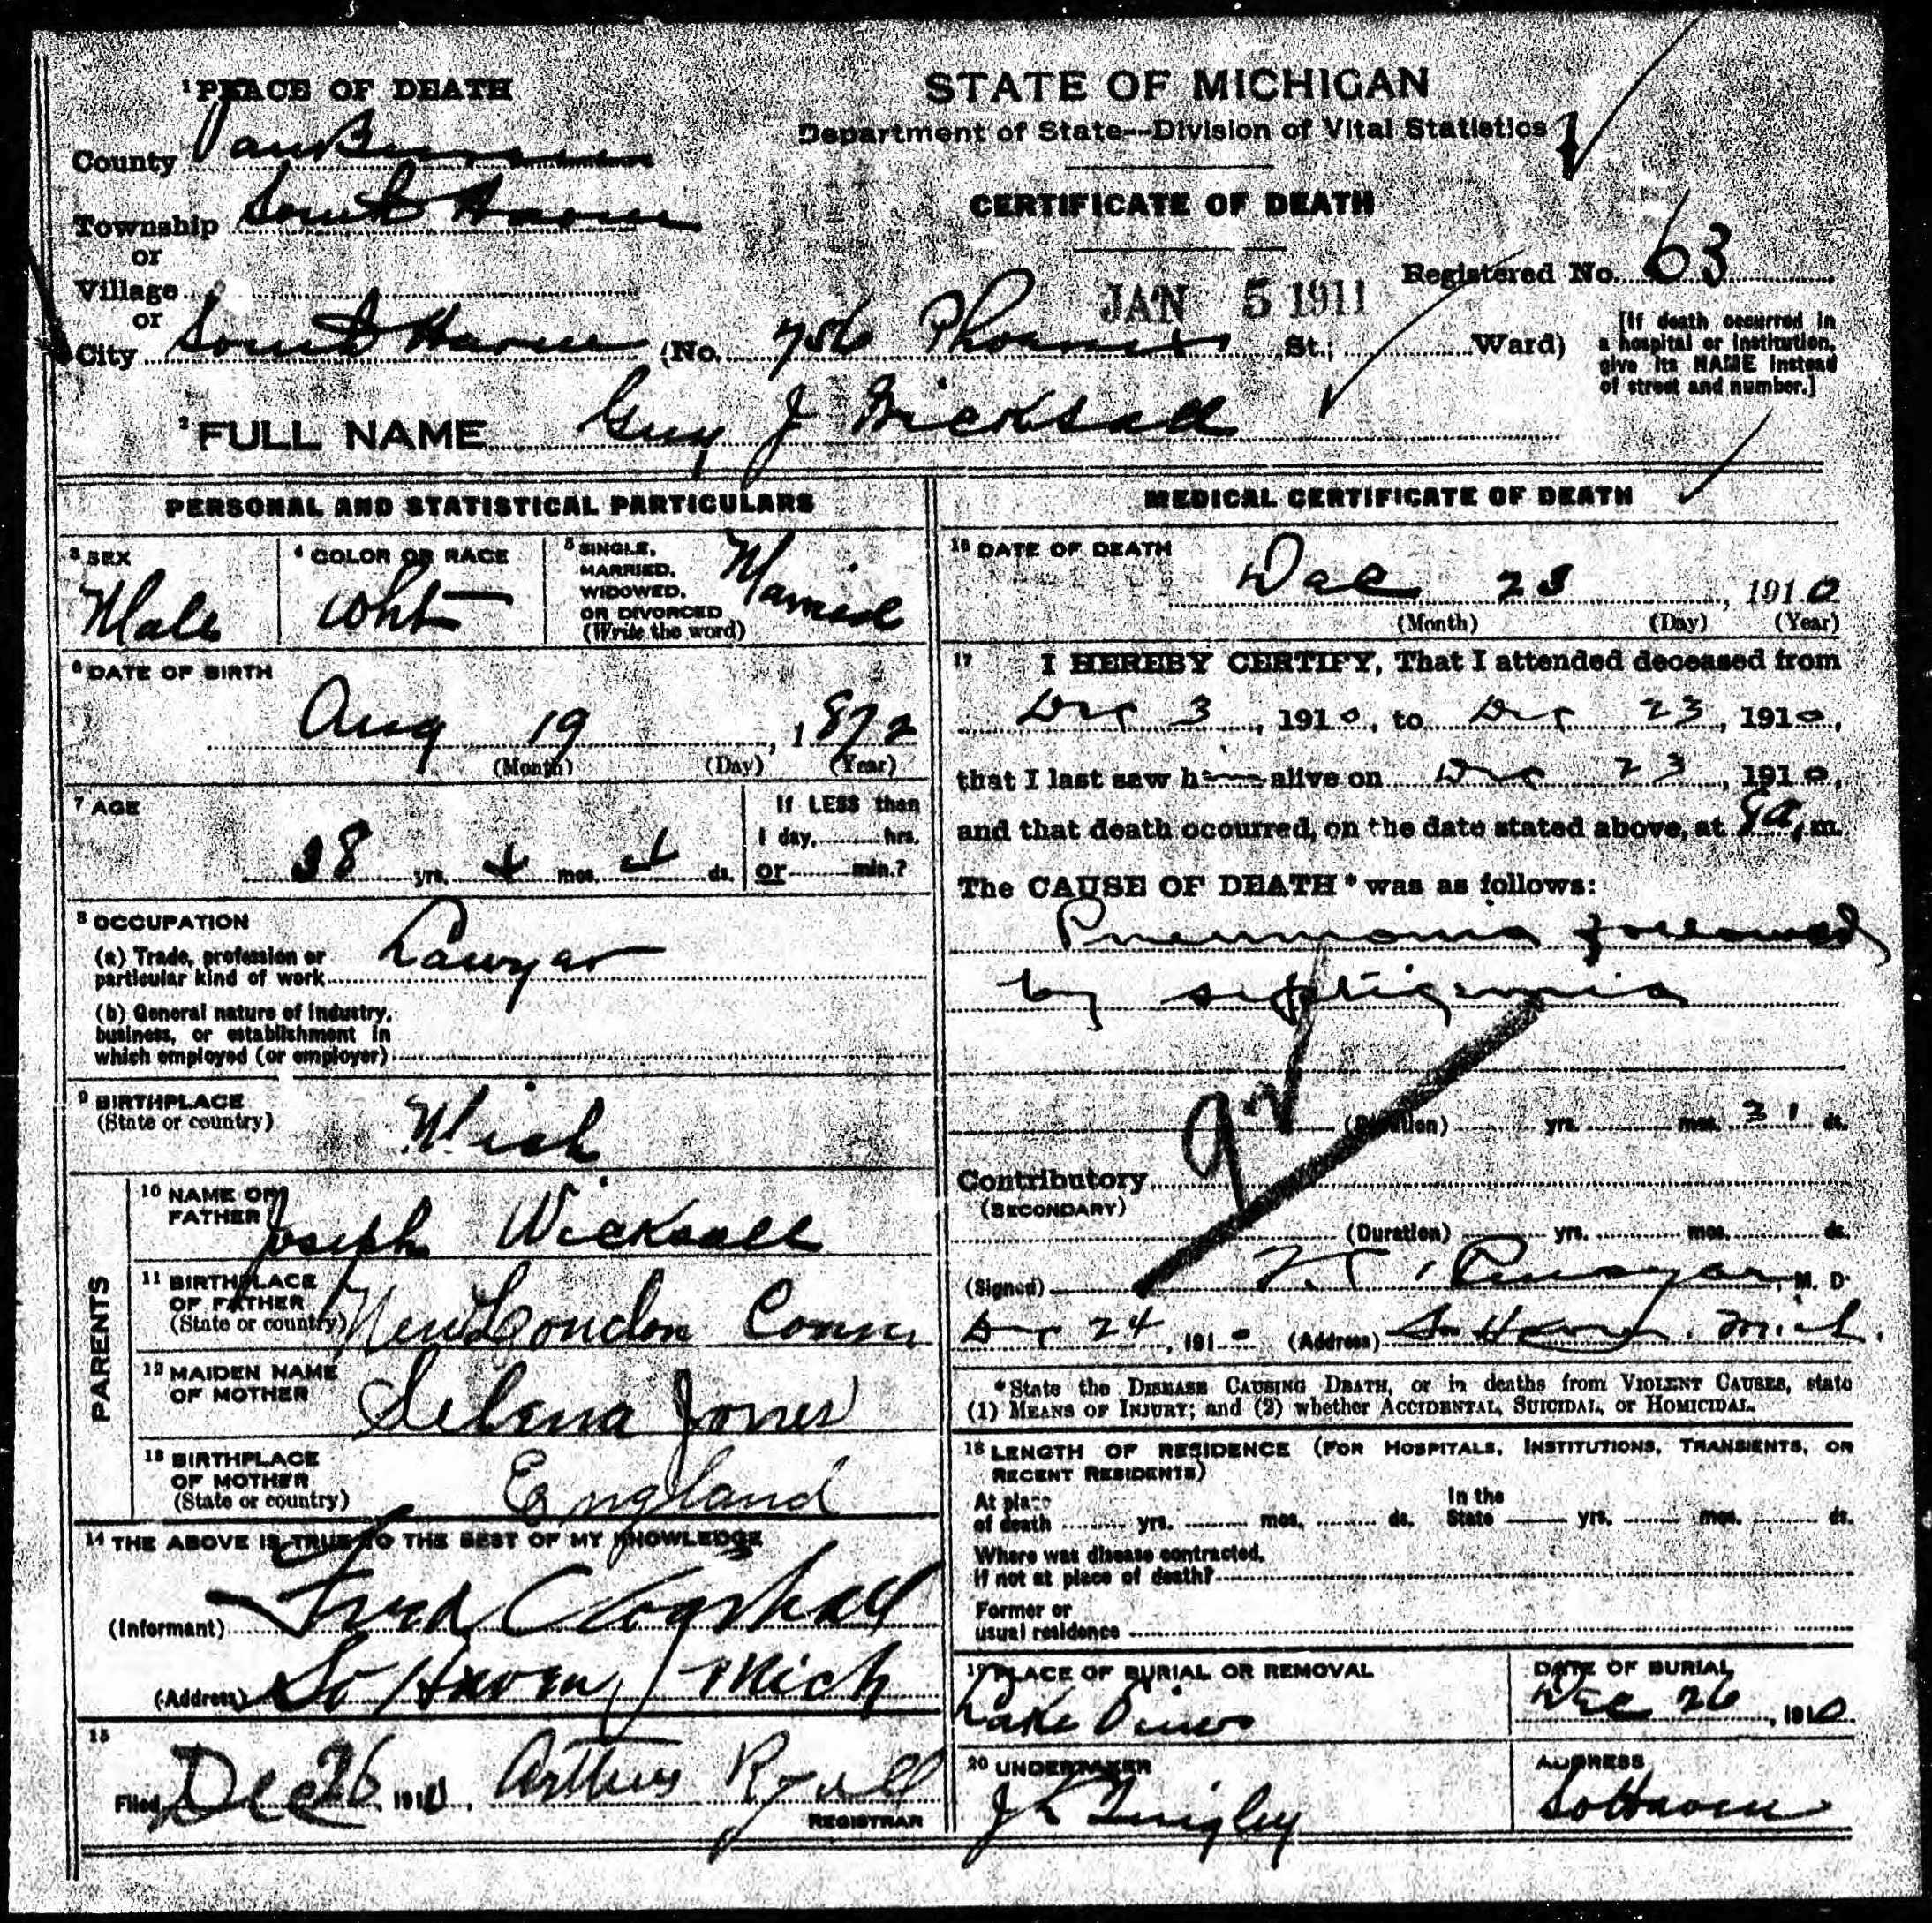 STATE OF MICHIGAN
Department of State—Division of Vital Statistics
CERTIFICATE OF DEATH
1 PLACE OF DEATH
County Van Buren
Township South Haven
or
Village
or
City South Haven (No. 756 Phoenix St.; Ward)
JAN 5 1911
Registered No. 63
[If death occurred in
a hospital or institution,
give its NAME instead
of street and number.]
2 FULL NAME Guy J Wicksall
PERSONAL AND STATISTICAL PARTICULARS
3 SEX
Male
4 COLOR OR RACE
Wht
5 SINGLE,
MARRIED,
WIDOWED,
OR DIVORCED
(Write the word)
Married
6 DATE OF BIRTH
Aug 19, 1872
(Month) (Day) (Year)
7 AGE
38 yrs. 4 mos. 4 ds.
If LESS than
1 day, hrs.
or min.?
8 OCCUPATION
(a) Trade, profession or
particular kind of work Lawyer
(b) General nature of industry,
business, or establishment in
which employed (or employer)
9 BIRTHPLACE
(State or country)
Mich
PARENTS
10 NAME OF
FATHER
Joseph Wicksall
11 BIRTHPLACE
OF FATHER
(State or country)
New London Conn
12 MAIDEN NAME
OF MOTHER
Selena Jones
13 BIRTHPLACE
OF MOTHER
(State or country)
England
14 THE ABOVE IS TRUE TO THE BEST OF MY KNOWLEDGE
(Informant) Fred C Cogshall
(Address) So Haven Mich
15
Filed Dec 26, 1910, Arthur
REGISTRAR
MEDICAL CERTIFICATE OF DEATH
16 DATE OF DEATH
Dec 23, 1910
(Month) (Day) (Year)
17 I HEREBY CERTIFY, That I attended deceased from
Dec 3, 1910, to Dec 23, 1910,
that I last saw him alive on Dec 23, 1910,
and that death occurred, on the date stated above, at 9 a, m.
The CAUSE OF DEATH* was as follows:
Pneumonia followed
by septicemia
(Duration) yrs. mos. 21 ds.
Contributory
(SECONDARY)
(Duration) yrs. mos. ds.
(Signed) M. D.
Dec 24, 1910 (Address) So Haven. Mich.
*State the DISEASE CAUSING DEATH, or in deaths from VIOLENT CAUSES, state
(1) MEANS OF INJURY; and (2) whether ACCIDENTAL, SUICIDAL, or HOMICIDAL.
18 LENGTH OF RESIDENCE (FOR HOSPITALS, INSTITUTIONS, TRANSIENTS, OR
RECENT RESIDENTS)
At place
of death yrs. mos. ds.
In the
State yrs. mos. ds.
Where was disease contracted,
if not at place of death?
Former or
usual residence
19 PLACE OF BURIAL OR REMOVAL
Lake View
DATE OF BURIAL
Dec 26, 1910
20 UNDERTAKER
J K Quigley
ADDRESS
So Haven